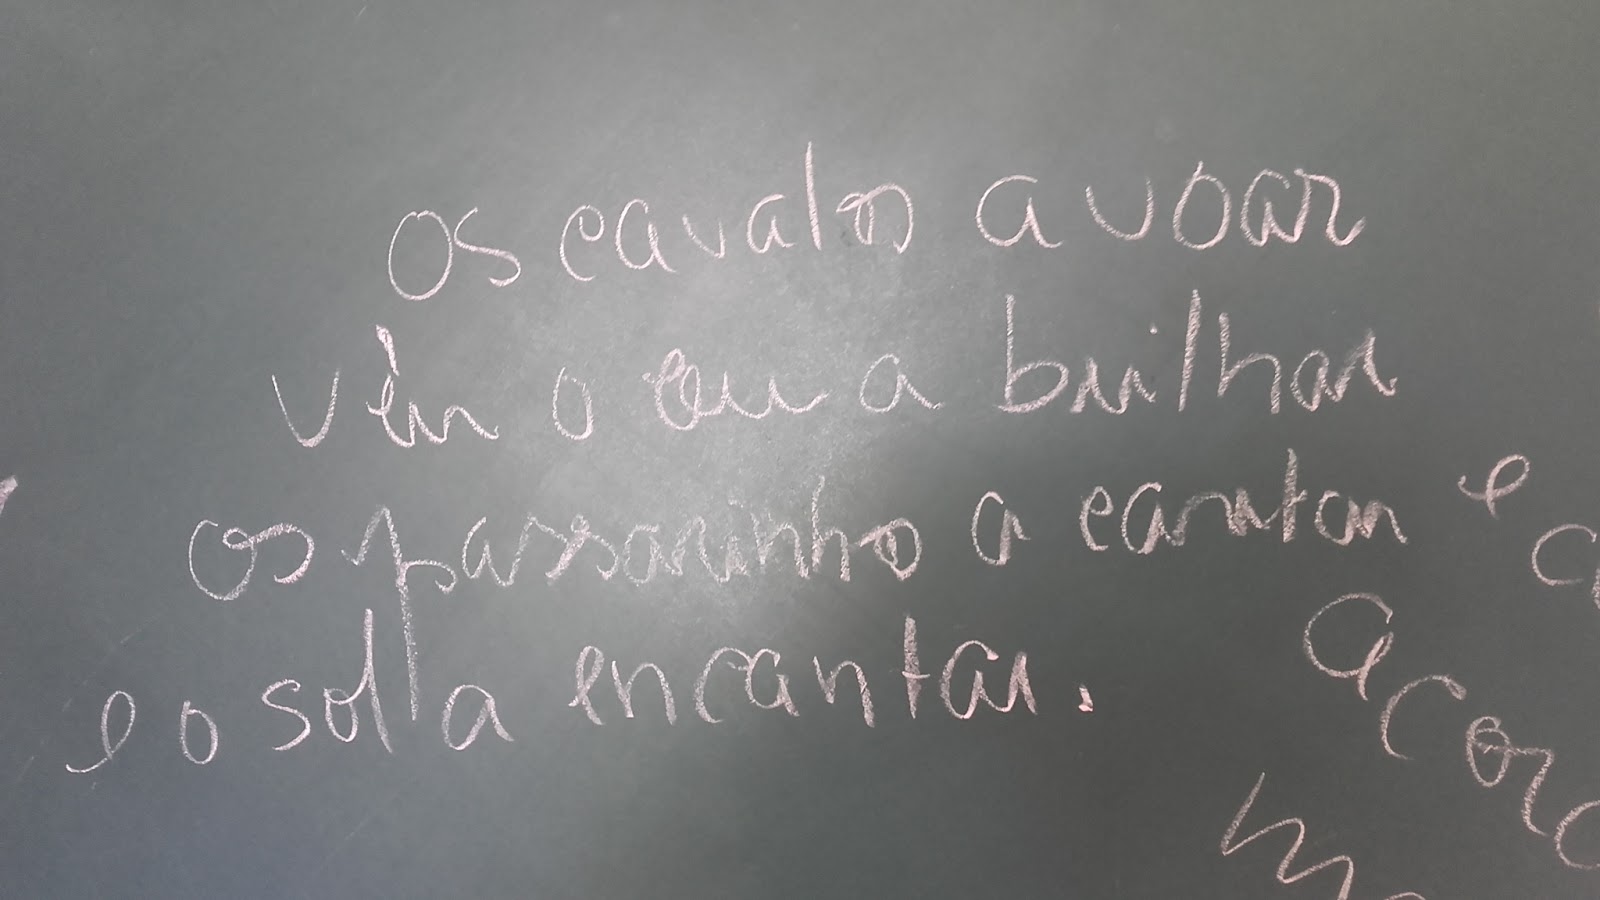 Os cavalos a voar
vêm o céu a brilhar
os passarinho a cantar
e o sol a encantar.
e
acord